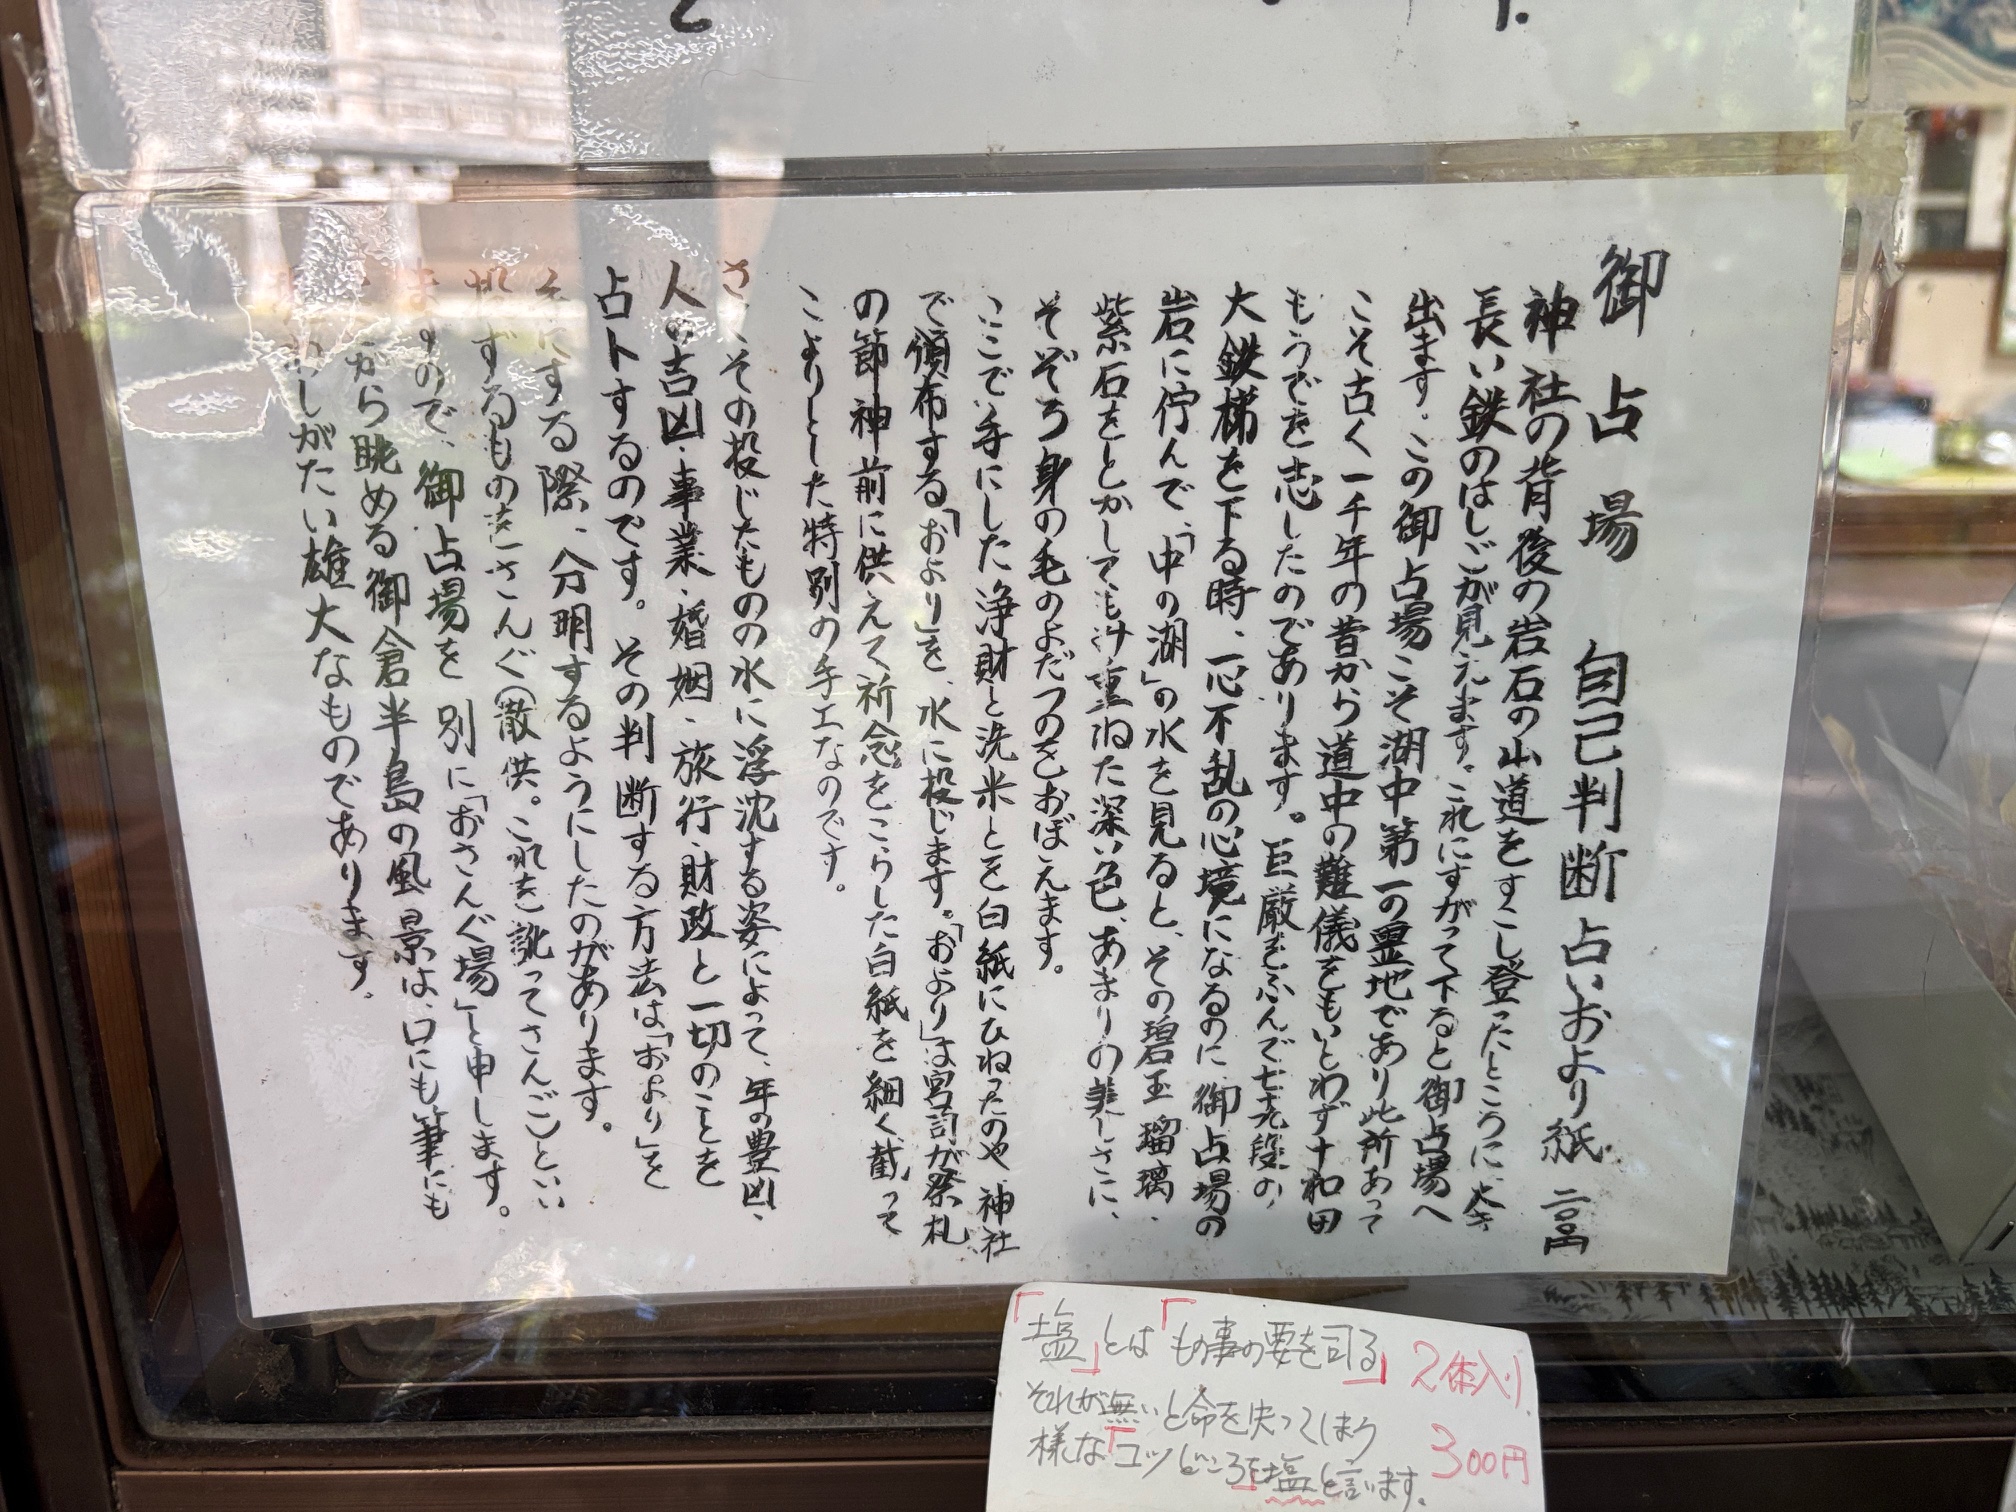 御占場 自己判断占いおより紙 二百円
神社の背後の岩石の山道をすこし登ったところに、大きな
長い鉄のはしごが見えます。これにすがって下ると御占場へ
出ます。この御占場こそ湖中第一の霊地であり此所あって
こそ古く一千年の昔から道中の難儀をもいとわず十和田
もうでを志したのであります。巨厳をふんで七十九段の、
大鉄梯を下る時、一心不乱の心境になるのに、御占場の
岩に佇んで、「中の湖」の水を見ると、その碧玉、瑠璃、
紫石をとかしても汁重ねた深い色、あまりの美しさに、
そぞろ身の毛のよだつのをおぼえます。
ここで手にした浄財と洗米とを白紙にひねったのや、神社
で頒布する「おより」を、水に投じます。「おより」は宮司が祭礼
の節神前に供えて祈念をこらした白紙を細く截って
こよりとした特別の手工なのです。
さてその投じたものの水に浮沈する姿によって、年の豊凶、
人の吉凶、事業、婚姻、旅行、財政と一切のことを
占トするのです。その判断する方法は「おより」を
にする際、分明するようにしたのがあります。
投ずるものを「さんぐ(散供。これを訛ってさんご)といい
ますので、御占場を別に「おさんぐ場」と申します。
から眺める御倉半島の風景は、口にも筆にも
しがたい雄大なものであります。
「塩」とは「もの事の要を司る」 2体入り
それが無いと命を失ってしまう
様な「コツどころを塩と言います。 300円